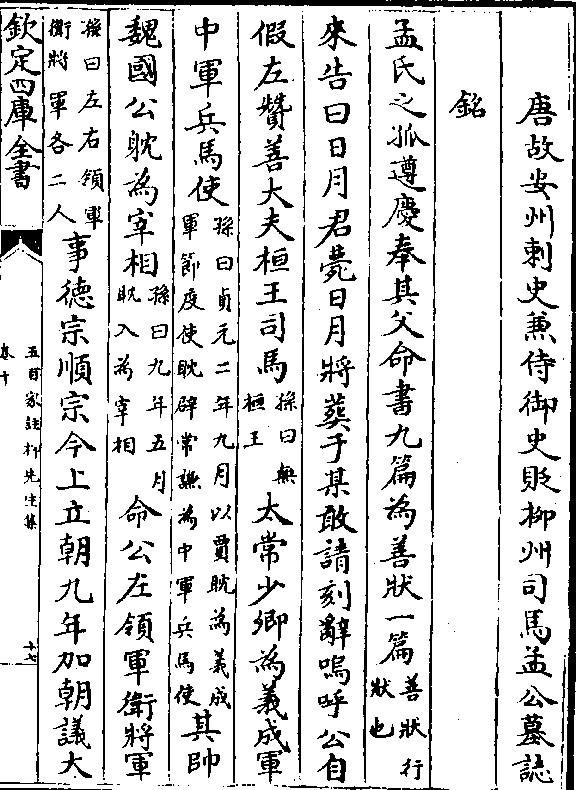 唐故安州刺史兼侍御史貶柳州司馬孟公墓誌
銘
孟氏之孤遵慶奉其父命書九篇為善狀一篇善狀行狀也
來告曰日月君薨日月將葬于某敢請刻辭嗚呼公自
假左贊善大夫桓王司馬孫曰無桓王太常少卿為義成軍
中軍兵馬使孫曰貞元二年九月以賈耽為義成軍節度使耽辟常謙為中軍兵馬使其帥
魏國公耽為宰相孫曰九年五月耽入為宰相命公左領軍衛將軍
孫曰左右領軍衛將軍各二人事德宗順宗今上立朝九年加朝議大
欽定四庫全書
五百家註柳先生集
卷十
十七